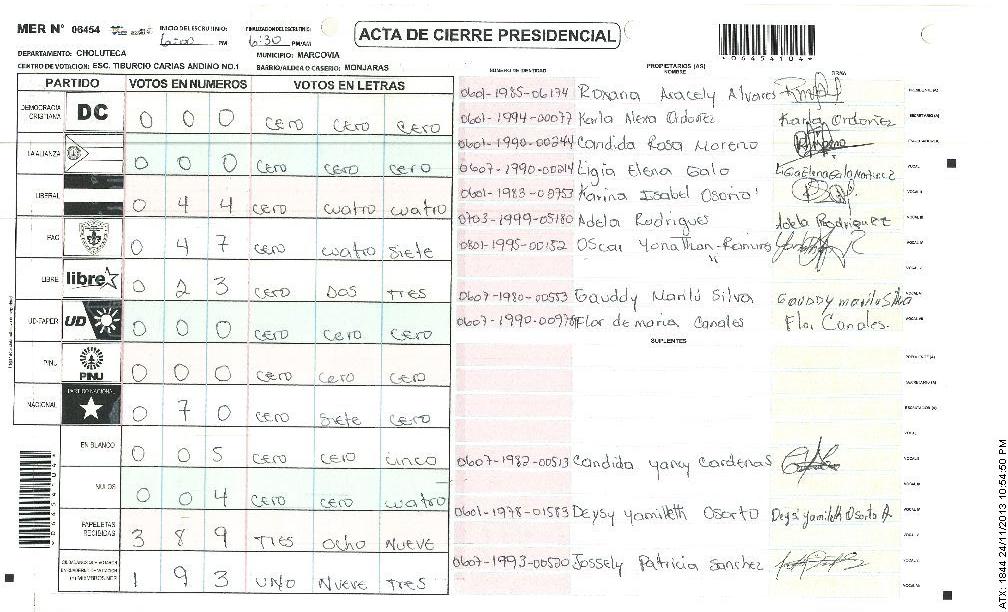 MER N° 06454 INICIO DEL ESCRUTINIO: 6:00 PM FINALIZACION DEL ESCRUTINIO: 6:30 PM/AM ACTA DE CIERRE PRESIDENCIAL
06454104
DEPARTAMENTO: CHOLUTECA MUNICIPIO: MARCOVIA
CENTRO DE VOTACION: ESC. TIBURCIO CARIAS ANDINO NO.1 BARRIO/ALDEA O CASERIO: MONJARAS
PARTIDO VOTOS EN NUMEROS VOTOS EN LETRAS
DEMOCRACIA CRISTIANA DC 0 0 0 cero cero cero
LA ALIANZA 0 0 0 cero cero cero
LIBERAL 0 4 4 cero cuatro cuatro
PAC 0 4 7 cero cuatro siete
LIBRE libre 0 2 3 cero Dos tres
UD-FAPER UD 0 0 0 cero cero cero
PINU PINU 0 0 0 cero cero cero
NACIONAL PARTIDO NACIONAL 0 7 0 cero siete cero
EN BLANCO 0 0 5 cero cero cinco
NULOS 0 0 4 cero cero cuatro
PAPELETAS RECIBIDAS 3 8 9 Tres ocho nueve
1 9 3 UNO Nueve Tres
NUMERO DE IDENTIDAD PROPIETARIOS (AS) NOMBRE FIRMA
0601-1985-06174 Roxana Aracely Alvares PRESIDENTE (A)
0601-1994-00077 Karla Alexa Ordoñez Karla Ordoñez SECRETARIO (A)
0601-1990-00244 Candida Rosa Moreno
0607-1990-00214 Ligia Elena Galo
0601-1983-00753 Karina Isabel Osorio
0703-1999-05180 Adela Rodrigues Adela Rodriguez
0801-1995-00152 Oscar Yonathan Ramires
0607-1980-00553 Gauddy Marilú Silva Gauddy marilu Silva
Flor de maria Canales Flor Canales.
SUPLENTES
0607-1982-00513 Candida yancy Cardenas
0601-1978-01583 Deysy Yamileth Osorto Deysi Yamileth Osorto A.
0607-1993-00520 Jossely Patricia Sanchez
ATX: 1844 24/11/2013 10:54:50 PM